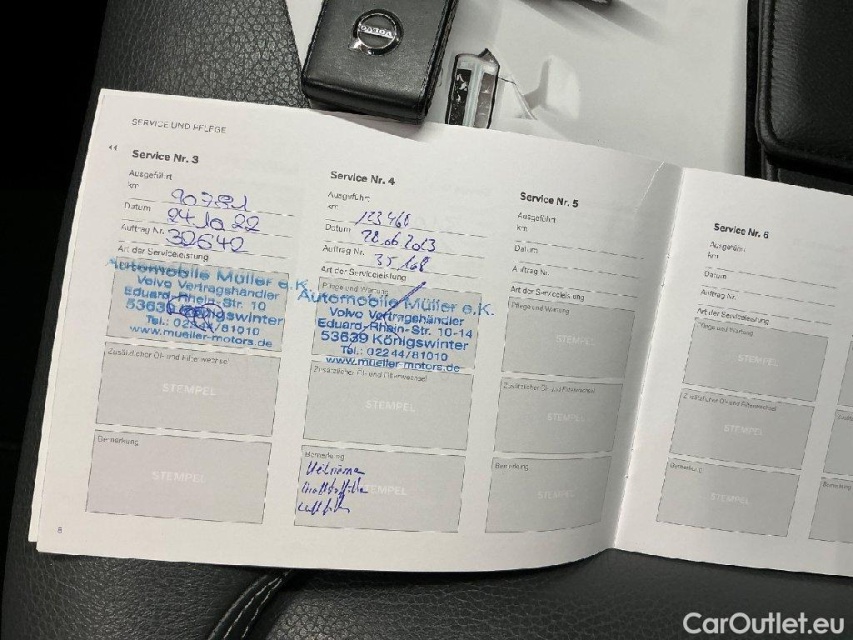 VOLVO
SERVICE UND PFLEGE
Service Nr. 3
Ausgeführt
km
Datum 24.10.22
Auftrag Nr. 32642
Art der Serviceleistung
Automobile Müller e.K.
Volvo Vertragshändler
Eduard-Rhein-Str. 10
53639 Königswinter
Tel.: 02244/81010
www.mueller-motors.de
Zusätzlicher Öl- und Filterwechsel
STEMPEL
Bemerkung
STEMPEL
8
Service Nr. 4
Ausgeführt
km 123468
Datum 28.06.2023
Auftrag Nr. 35168
Art der Serviceleistung
Pflege und Wartung
Automobile Müller e.K.
Volvo Vertragshändler
Eduard-Rhein-Str. 10-14
53639 Königswinter
Tel.: 02244/81010
www.mueller-motors.de
Zusätzlicher Öl- und Filterwechsel
STEMPEL
Bemerkung
STEMPEL
Kraftstofffilter
Luftfilter
Service Nr. 5
Ausgeführt
km
Datum
Auftrag Nr.
Art der Serviceleistung
Pflege und Wartung
STEMPEL
Zusätzlicher Öl- und Filterwechsel
STEMPEL
Bemerkung
STEMPEL
Service Nr. 6
Ausgeführt
km
Datum
Auftrag Nr.
Art der Serviceleistung
Pflege und Wartung
STEMPEL
Zusätzlicher Öl- und Filterwechsel
STEMPEL
Bemerkung
STEMPEL
CarOutlet.eu